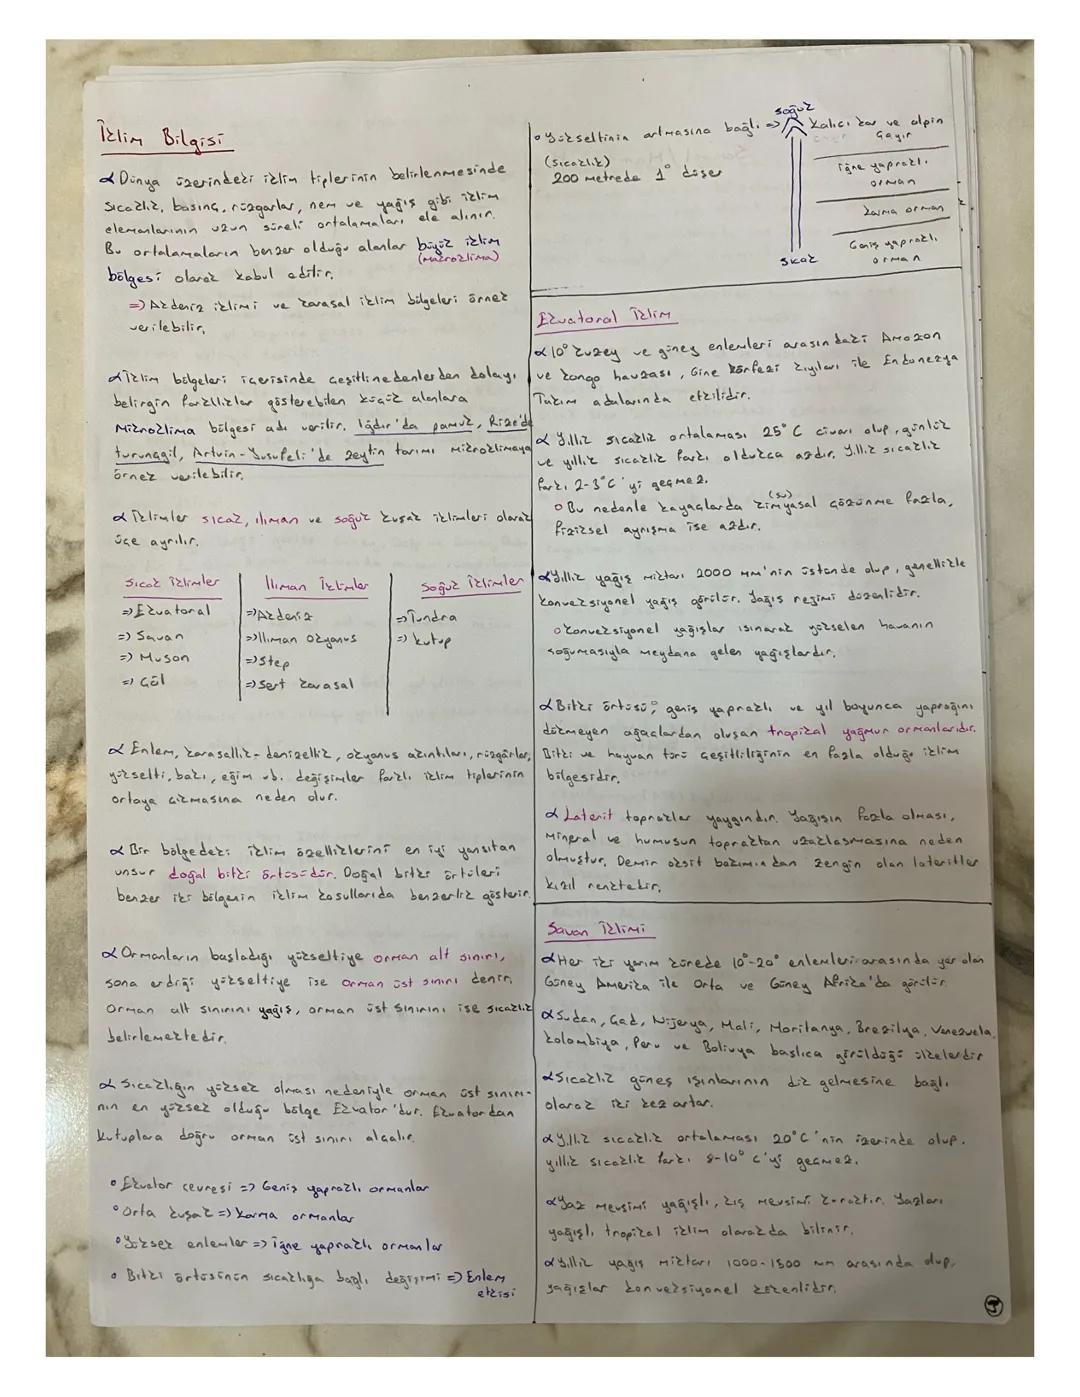 İklim Bilgisi
∝ Dünya üzerindeki iklim tiplerinin belirlenmesinde
sıcaklık, basınç, rüzgarlar, nem ve yağış gibi iklim
elemanlarının uzun süreli ortalamaları ele alınır.
Bu ortalamaların benzer olduğu alanlar büyük iklim
(makroklima)
bölgesi olarak kabul edilir.
=> Akdeniz iklimi ve karasal iklim bölgeleri örnek
verilebilir.
∝ İklim bölgeleri içerisinde çeşitli nedenlerden dolayı,
belirgin farklılıklar gösterebilen küçük alanlara
mikroklima bölgesi adı verilir. Iğdır'da pamuk, Rize'de
turunçgil, Artvin-Yusufeli'de zeytin tarımı mikroklimaya
örnek verilebilir.
∝ İklimler sıcak, ılıman ve soğuk kuşak iklimleri olarak
üçe ayrılır.
Sıcak İklimler
=> Ekvatoral
=> Savan
=> Muson
=> Çöl
Ilıman İklimler
=> Akdeniz
=> Iliman Okyanus
=> Step
=> Sert Karasal
Soğuk İklimler
=> Tundra
=> Kutup
∝ Enlem, karasallık-denizellik, okyanus akıntıları, rüzgârlar,
yükselti, bakı, eğim vb. değişimler farklı iklim tiplerinin
ortaya çıkmasına neden olur.
∝ Bir bölgedeki iklim özelliklerini en iyi yansıtan
unsur doğal bitki örtüsüdür. Doğal bitki örtüleri
benzer iki bölgenin iklim koşullarıda benzerlik gösterir.
∝ Ormanların başladığı yükseltiye orman alt sınırı,
sona erdiği yükseltiye ise orman üst sınırı denir.
Orman alt sınırını yağış, orman üst sınırını ise sıcaklık
belirlemektedir.
∝ Sıcaklığın yüksek olması nedeniyle orman üst sınırı-
nın en yüksek olduğu bölge Ekvator'dur. Ekvatordan
kutuplara doğru orman üst sınırı alçalır.
° Ekvator çevresi => Geniş yapraklı ormanlar
° Orta kuşak => Karma ormanlar
° Yüksek enlemler => İğne yapraklı ormanlar
° Bitki örtüsünün sıcaklığa bağlı değişimi => Enlem
etkisi
° Yükseltinin artmasına bağlı =>
(sıcaklık)
200 metrede 1° düşer
Soğuk
Kalıcı kar ve alpin
Çayır
İğne yapraklı
orman
Karma orman
Geniş yapraklı
orman
Sıcak
Ekvatoral İklim
∝ 10° kuzey ve güney enlemleri arasındaki Amazon
ve Kongo havzası, Gine Körfezi kıyıları ile Endonezya
Takım adalarında etkilidir.
∝ Yıllık sıcaklık ortalaması 25°C civarı olup, günlük
ve yıllık sıcaklık farkı oldukça azdır. Yıllık sıcaklık
farkı 2-3°C'yi geçmez.
(su)
° Bu nedenle kayaçlarda kimyasal çözünme fazla,
fiziksel ayrışma ise azdır.
∝ Yıllık yağış miktarı 2000 mm'nin üstünde olup, genellikle
konveksiyonel yağış görülür. Yağış rejimi düzenlidir.
° Konveksiyonel yağışlar ısınarak yükselen havanın
soğumasıyla meydana gelen yağışlardır.
∝ Bitki örtüsü; geniş yapraklı ve yıl boyunca yaprağını
dökmeyen ağaçlardan oluşan tropikal yağmur ormanlarıdır.
Bitki ve hayvan türü çeşitliliğinin en fazla olduğu iklim
bölgesidir.
∝ Laterit topraklar yaygındır. Yağışın fazla olması,
mineral ve humusun topraktan uzaklaşmasına neden
olmuştur. Demir oksit bakımından zengin olan lateritler
kızıl renktedir.
Savan İklimi
∝ Her iki yarım kürede 10°-20° enlemleri arasında yer alan
Güney Amerika ile Orta ve Güney Afrika'da görülür.
∝ Sudan, Çad, Nijerya, Mali, Moritanya, Brezilya, Venezuela,
Kolombiya, Peru ve Bolivya başlıca görüldüğü ülkelerdir
∝ Sıcaklık güneş ışınlarının dik gelmesine bağlı
olarak iki kez artar.
∝ Yıllık sıcaklık ortalaması 20°C'nin üzerinde olup.
yıllık sıcaklık farkı 8-10°C'yi geçmez.
∝ Yaz mevsimi yağışlı, kış mevsimi kuraktır. Yazları
yağışlı tropikal iklim olarakda bilinir.
∝ Yıllık yağış miktarı 1000-1500 mm arasında olup,
yağışlar konveksiyonel kökenlidir.